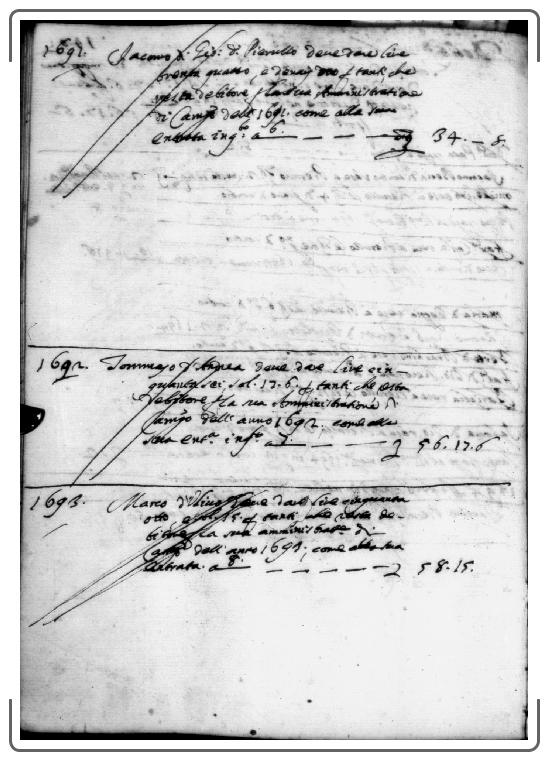 1691. Iacomo d. Gio: d. Pierullo deve dare lire
trenta quattro, e denari otto p tanti che
resta debitore p la sua Amministratione
di Camp.o dell' 1691. come alla sua
entrata in q.to a 6. — — — — 34. — 8.
1692. Tommaso d'Andrea deve dare lire cin-
quanta sei sol. 17.6. p tanti che resta
debitore p la sua Amministratione d
Camp.o dell' anno 1692. come alla
sua ent.a in q.to a 7. — — — 56.17.6
1693. Marco deve dare lire cinquanta
otto e sol. 15. p tanti che resta de-
bitore p la sua amministrat.e di
dell' anno 1693. come alla sua
entrata. a 8. — — — — 58.15.